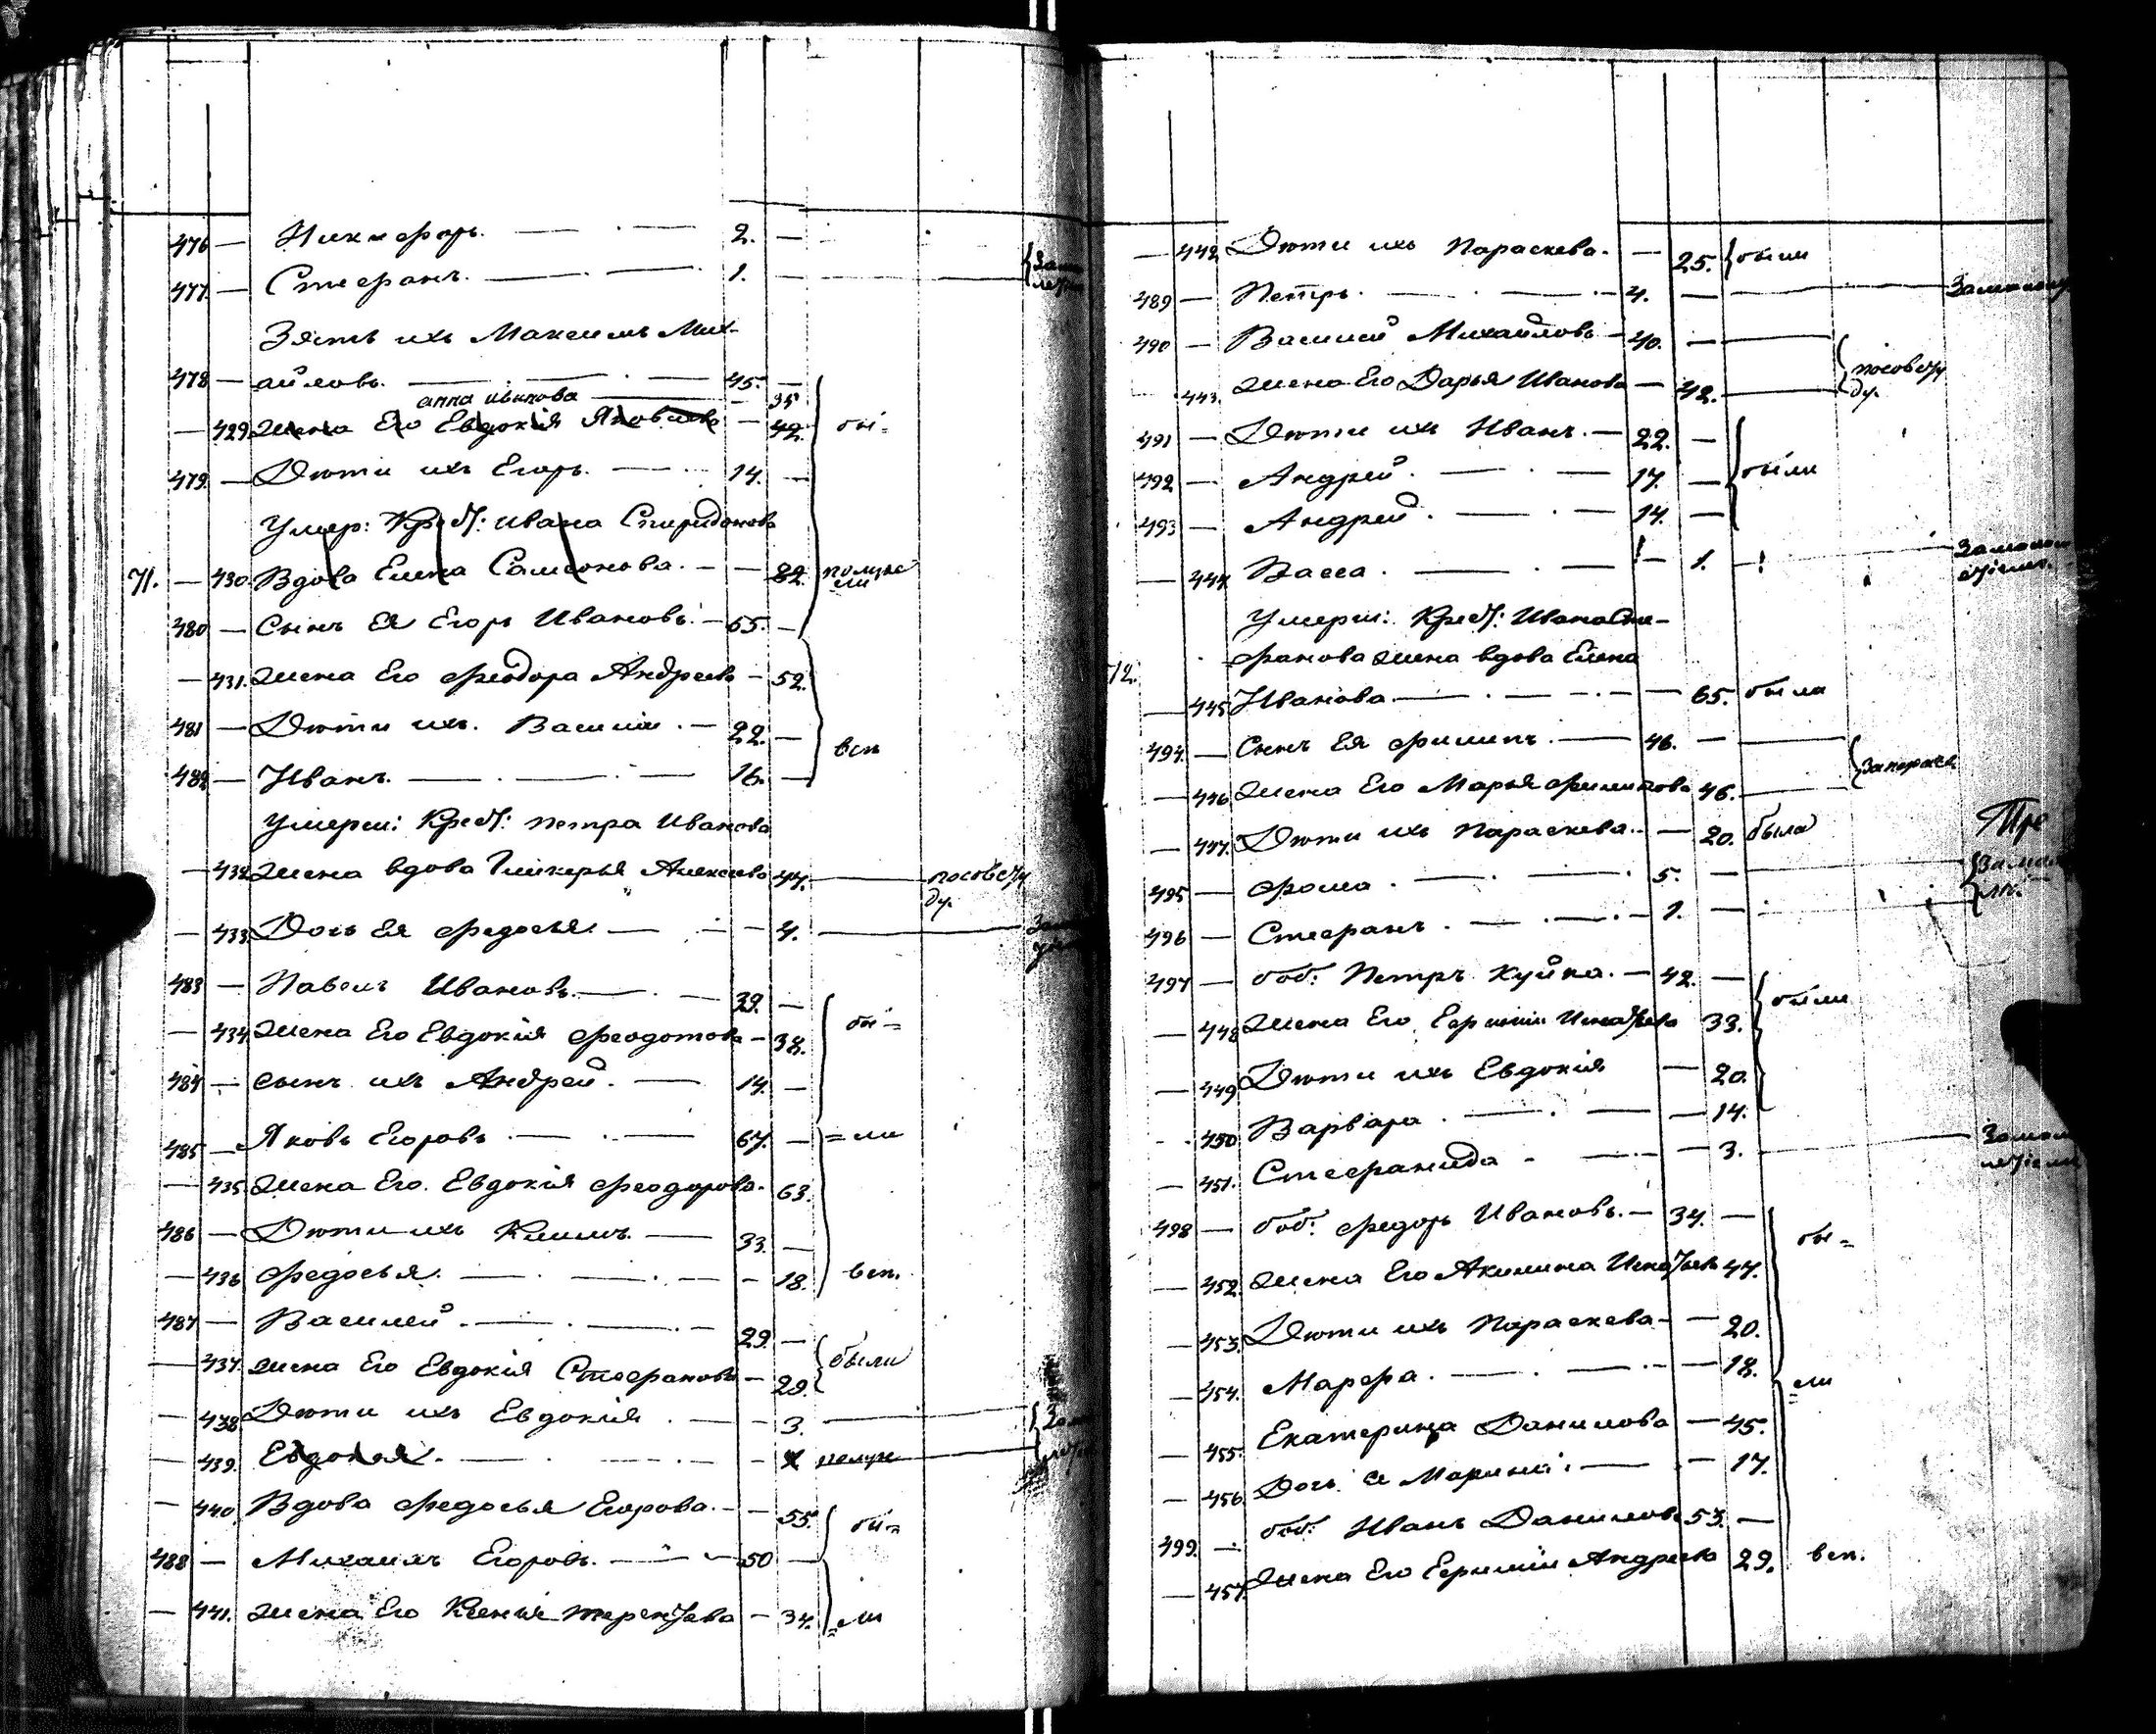 476 — Никифоръ. — 2. —
477 — Стефанъ. — 1. —
Зять ихъ Максимъ Мих-
478 — айловъ. — 45. —
анна иванова — 35
— 429 жена Его Евдокія Яковлева — 42. бы=
479. — Дѣти ихъ Егоръ. — 14. —
Умер: Крест: Ивана Спиридонова
71. — 430. Вдова Елена Самсонова. — 82.
480 — Сынъ Ея Егоръ Ивановъ. — 55. —
— 431. жена Его Феодора Андреева — 52.
481 — Дѣти ихъ. Василій. — 22. —
всп
482 — Иванъ. — 16. —
Умерш: Крест: Петра Иванова
— 432 жена вдова Гликерья Алексеева 44. —
— 433. Дочь Ея Федосья. — 4. —
483 — Павелъ Ивановъ. — 39. —
— 434. жена Его Евдокія Феодотова — 38. бы=
484 — сынъ ихъ Андрей. — 14. —
485 — Яковъ Егоровъ — 67. — =ли
— 435. жена Его. Евдокія Феодорова. 63.
486 — Дѣти ихъ Климъ. — 33. —
— 436 Федосья. — 18. всп.
487 — Василей. — 29. —
— 437. жена Его Евдокія Стефанова — 29. были
— 438. Дѣти ихъ Евдокія. — 3. —
— 439. Евдокея. —
— 440. Вдова Федосья Егорова. — 55. бы=
488 — Михаилъ Егоровъ. — 50 —
— 441. жена Его Ксенія Терентьева — 34. =ли
— 442 Дѣти ихъ Параскева. — 25. были
489 — Петръ. — 4. —
490 — Василей Михайловъ — 40. —
443. жена Его Дарья Иванова — 42. —
491 — Дѣти ихъ Иванъ. — 22. —
492 — Андрей. — 17. — были
493 — Андрей. — 14. —
— 444. Васса. — 1. —
Умерш: Крест: Ивана Сте-
фанова жена вдова Елена
72.
— 445 Иванова — 65. была
494. — Сынъ Ея Филипъ. — 46. —
— 446 жена Его Марья Филипова 46. —
— 447. Дѣти ихъ Параскева. — 20. была
495 — Фома. — 5. —
496 — Стефанъ. — 1. —
497 — боб: Петръ Куйка. — 42. —
были
— 448 жена Его, Ефимия Игнатьева 33.
— 449 Дѣти ихъ Евдокія — 20.
450 Варвара. — 14.
— 451. Стефанида — 3. —
498 — боб: Федоръ Ивановъ. — 34. —
бы=
— 452. жена Его Акилина Игнатьев 44.
— 453. Дѣти ихъ Параскева — 20.
— 454. Марфа. — 18.
=ли
— 455. Екатерина Данилова — 45.
— 456. Дочь Ея Марина. — 17.
499. — боб: Иванъ Даниловъ 53. —
— 457. жена Его Ефимия Андреева 29. всп.